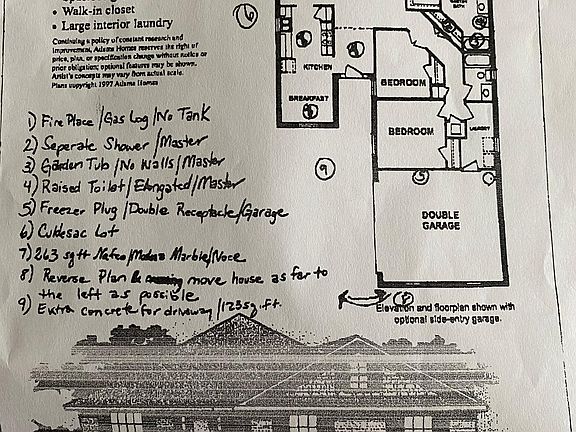 • Walk-in closet
• Large interior laundry
Continuing a policy of constant research and
improvement, Adams Homes reserves the right of
price, plan, or specification change without notice or
prior obligation; optional features may be shown.
Artist's concepts may vary from actual scale.
Plans copyright 1997 Adams Homes
6
KITCHEN
BREAKFAST
BEDROOM
BEDROOM
LAUNDRY
9
5
DOUBLE
GARAGE
8
1) Fire Place / Gas Log / No Tank
2) Seperate Shower / Master
3) Garden Tub / No Walls / Master
4) Raised Toilet / Elongated / Master
5) Freezer Plug / Double Receptacle / Garage
6) Culdesac Lot
7) 263 sqft Marble
8) Reverse Plan & move house as far to
the left as posible
9) Extra concrete for driveway / 123 sq ft.
Elevation and floorplan shown with
optional side-entry garage.